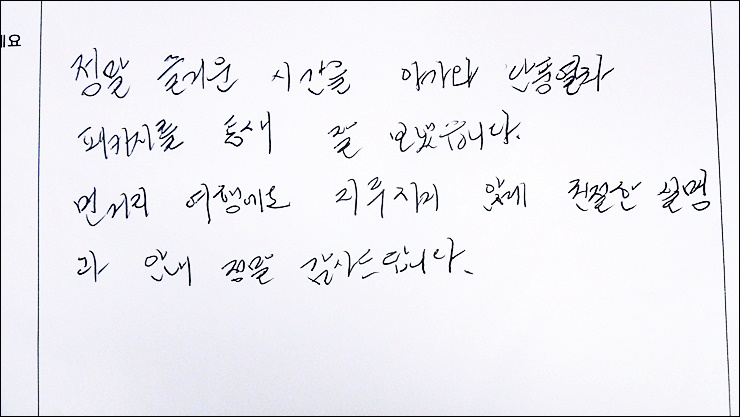 세요
정말 즐거운 시간을 아가와 단풍열차
패키지를 통새 잘 보냈습니다.
먼거리 여행에도 지루지 않게 친절한 설명
과 안내 정말 감사드립니다.